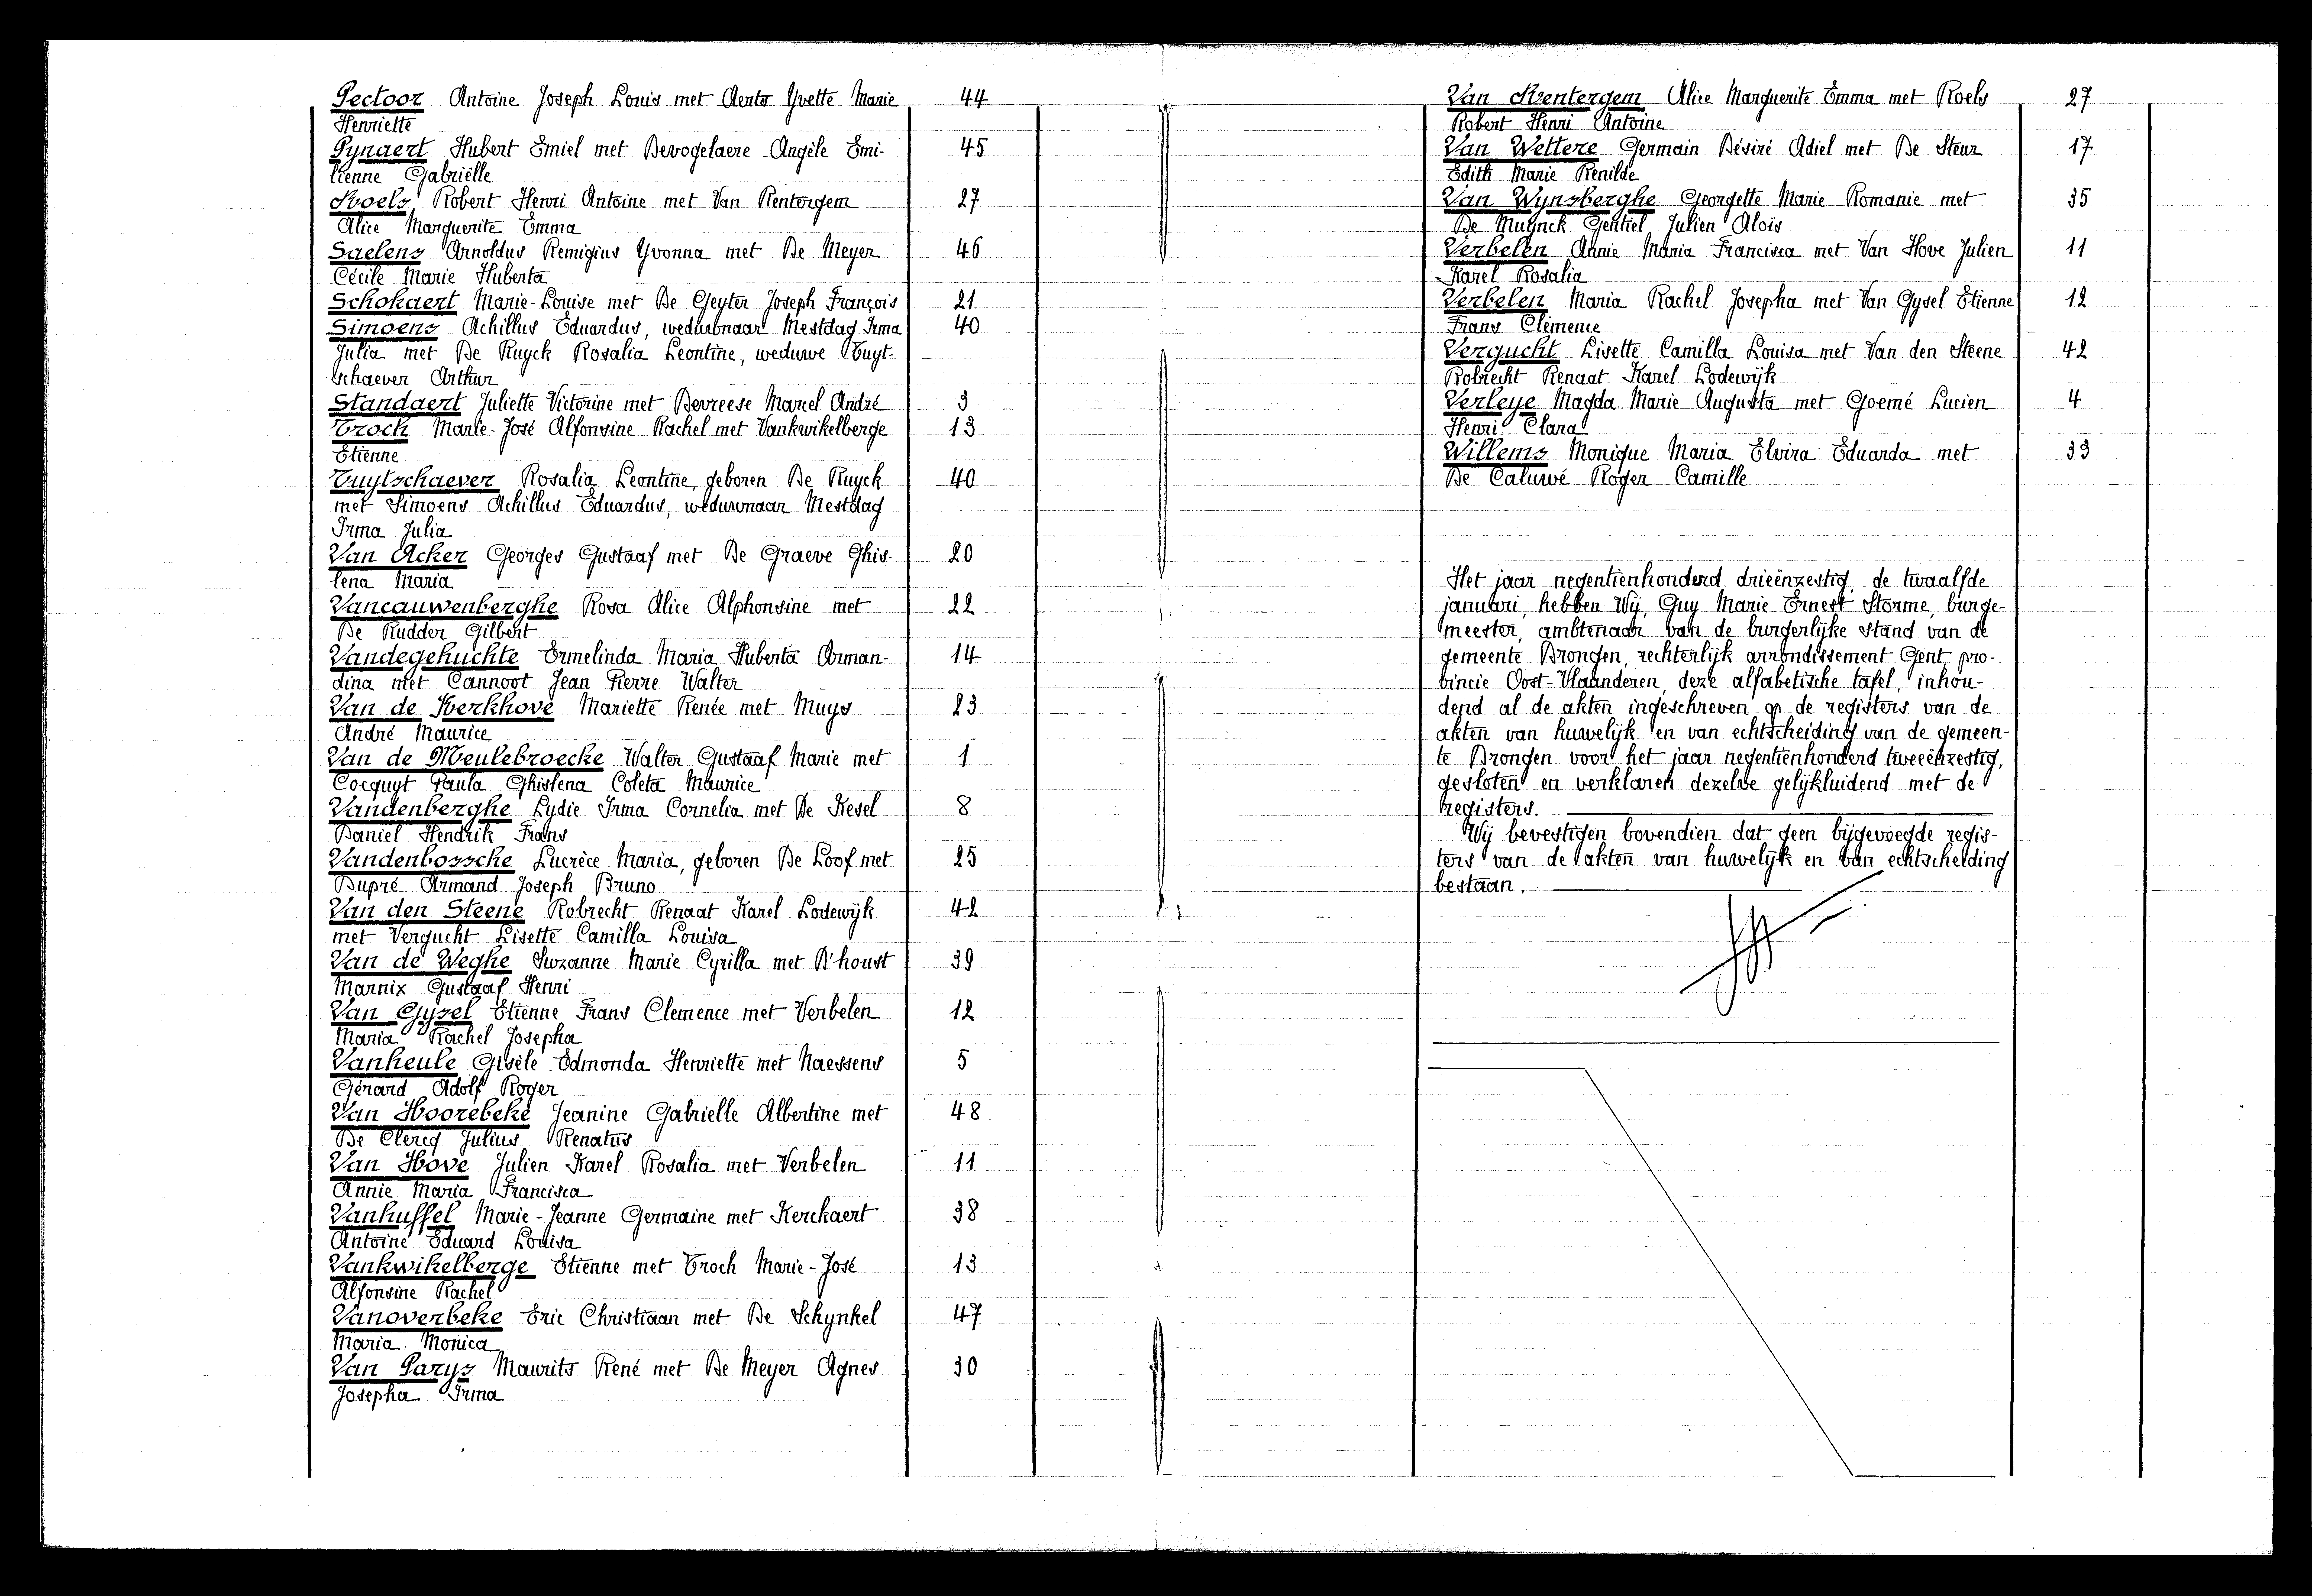 Pectoor Antoine Joseph Louis met Aerts Yvette Marie 44
Henriette
Pynaert Hubert Emiel met Devogelaere Angèle Emi- 45
lienne Gabriëlle
Roels Robert Henri Antoine met Van Rentergem 27
Alice Marguerite Emma
Saelens Arnoldus Remigius Yvonna met De Meyer 46
Cécile Marie Huberta
Schokaert Marie-Louise met De Geyter Joseph François 21
Simoens Achillus Eduardus, weduwnaar Mestdag Irma 40
Julia met De Ruyck Rosalia Leontine, weduwe Tuyt-
schaever Arthur
Standaert Juliette Victorine met Devreese Marcel André 3
Troch Marie-José Alfonsine Rachel met Vankwikelberge 13
Etienne
Tuytschaever Rosalia Leontine, geboren De Ruyck 40
met Simoens Achillus Eduardus, weduwnaar Mestdag
Irma Julia
Van Acker Georges Gustaaf met De Graeve Ghis- 20
lena Maria
Vancauwenberghe Rosa Alice Alphonsine met 22
De Rudder Gilbert
Vandegehuchte Ermelinda Maria Huberta Arman- 14
dina met Cannoot Jean Pierre Walter
Van de Kerkhove Mariette Renée met Muys 23
André Maurice
Van de Meulebroecke Walter Gustaaf Marie met 1
Cocquyt Paula Ghislena Coleta Maurice
Vandenberghe Lydie Irma Cornelia met De Kesel 8
Daniel Hendrik Frans
Vandenbossche Lucrèce Maria, geboren De Loof met 25
Dupré Armand Joseph Bruno
Van den Steene Robrecht Renaat Karel Lodewijk 42
met Vergucht Lisette Camilla Louisa
Van de Weghe Suzanne Marie Cyrilla met D'houst 39
Marnix Gustaaf Henri
Van Gysel Etienne Frans Clemence met Verbelen 12
Maria Rachel Josepha
Vanheule Gisèle Edmonda Henriette met Naessens 5
Gérard Adolf Roger
Van Hoorebeke Jeanine Gabrielle Albertine met 48
De Clercq Julius Renatus
Van Hove Julien Karel Rosalia met Verbelen 11
Annie Maria Francisca
Vanhuffel Marie-Jeanne Germaine met Kerckaert 38
Antoine Eduard Louisa
Vankwikelberge Etienne met Troch Marie-José 13
Alfonsine Rachel
Vanoverbeke Eric Christiaan met De Schynkel 47
Maria Monica
Van Parys Maurits René met De Meyer Agnes 30
Josepha Irma
Van Rentergem Alice Marguerite Emma met Roels 27
Robert Henri Antoine
Van Wettere Germain Désiré Adiel met De Steur 17
Edith Marie Renilde
Van Wynsberghe Georgette Marie Romanie met 35
De Muynck Gentiel Julien Aloïs
Verbelen Annie Maria Francisca met Van Hove Julien 11
Karel Rosalia
Verbelen Maria Rachel Josepha met Van Gysel Etienne 12
Frans Clemence
Vergucht Lisette Camilla Louisa met Van den Steene 42
Robrecht Renaat Karel Lodewijk
Verleye Magda Marie Augusta met Goemé Lucien 4
Henri Clara
Willems Monique Maria Elvira Eduarda met 33
De Caluwé Roger Camille
Het jaar negentienhonderd drieënzestig, de twaalfde
januari, hebben Wij, Guy Marie Ernest Storme, burge-
meester, ambtenaar van de burgerlijke stand van de
gemeente Drongen, rechterlijk arrondissement Gent, pro-
vincie Oost-Vlaanderen, deze alfabetische tafel, inhou-
dend al de akten ingeschreven op de registers van de
akten van huwelijk en van echtscheiding van de gemeen-
te Drongen voor het jaar negentienhonderd tweeënzestig,
gesloten en verklaren dezelve gelijkluidend met de
registers.
Wij bevestigen bovendien dat geen bijgevoegde regis-
ters van de akten van huwelijk en van echtscheiding
bestaan.